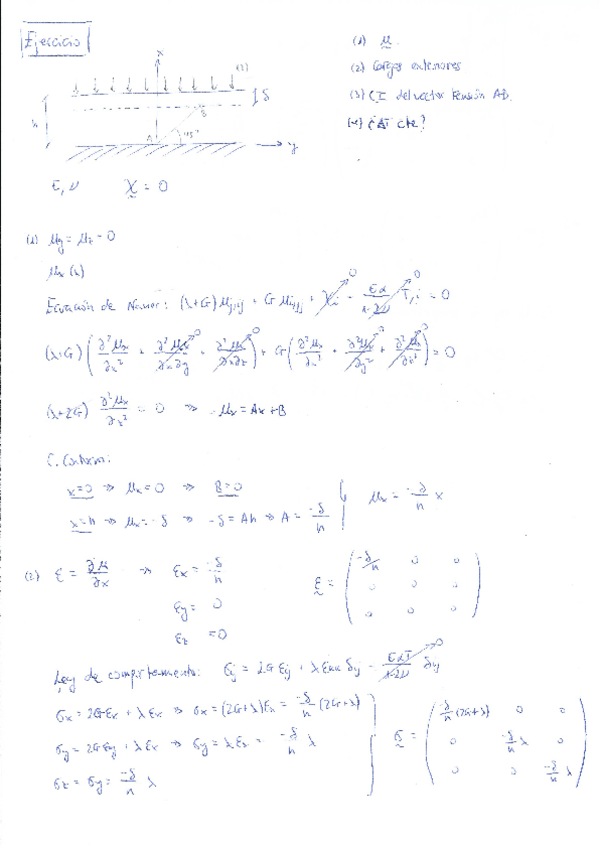 Ejercicio
(1) u.
(2) Cargas exteriores
(3) CI del vector tensión AB.
(4) ¿ΔT cte?
x
(1)
δ
h
B
A
45°
y
E, ν    X = 0
(1) uy = uz = 0
ux (x)
Ecuación de Navier: (λ+G) uj,ij + G ui,jj + Xi - Eα/(1-2ν) T,i = 0
(λ+G) (∂²ux/∂x² + ∂²ux/∂x∂y + ∂²ux/∂x∂z) + G (∂²ux/∂x² + ∂²ux/∂y² + ∂²ux/∂z²) = 0
(λ+2G) ∂²ux/∂x² = 0 ⇒ ux = Ax+B
C. Contorno:
x=0 ⇒ ux = 0 ⇒ B=0
x=h ⇒ ux = -δ ⇒ -δ = Ah ⇒ A = -δ/h
ux = -δ/h x
(2) ε = ∂u/∂x ⇒ εx = -δ/h
εy = 0
εz = 0
ε = ( -δ/h 0 0
0 0 0
0 0 0 )
Ley de comportamiento: σij = 2G εij + λ εkk δij - EαT/(1-2ν) δij
σx = 2Gεx + λ εx ⇒ σx = (2G+λ)εx = -δ/h (2G+λ)
σy = 2Gεy + λ εx ⇒ σy = λ εx = -δ/h λ
σz = σy = -δ/h λ
σ = ( -δ/h (2G+λ) 0 0
0 -δ/h λ 0
0 0 -δ/h λ )